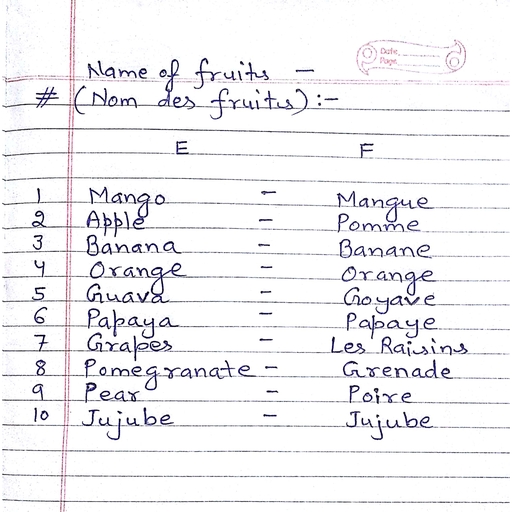 Date
Page
Name of fruits -
# (Nom des fruits) :-
E F
1 Mango - Mangue
2 Apple - Pomme
3 Banana - Banane
4 Orange - Orange
5 Guava - Goyave
6 Papaya - Papaye
7 Grapes - Les Raisins
8 Pomegranate - Grenade
9 Pear - Poire
10 Jujube - Jujube